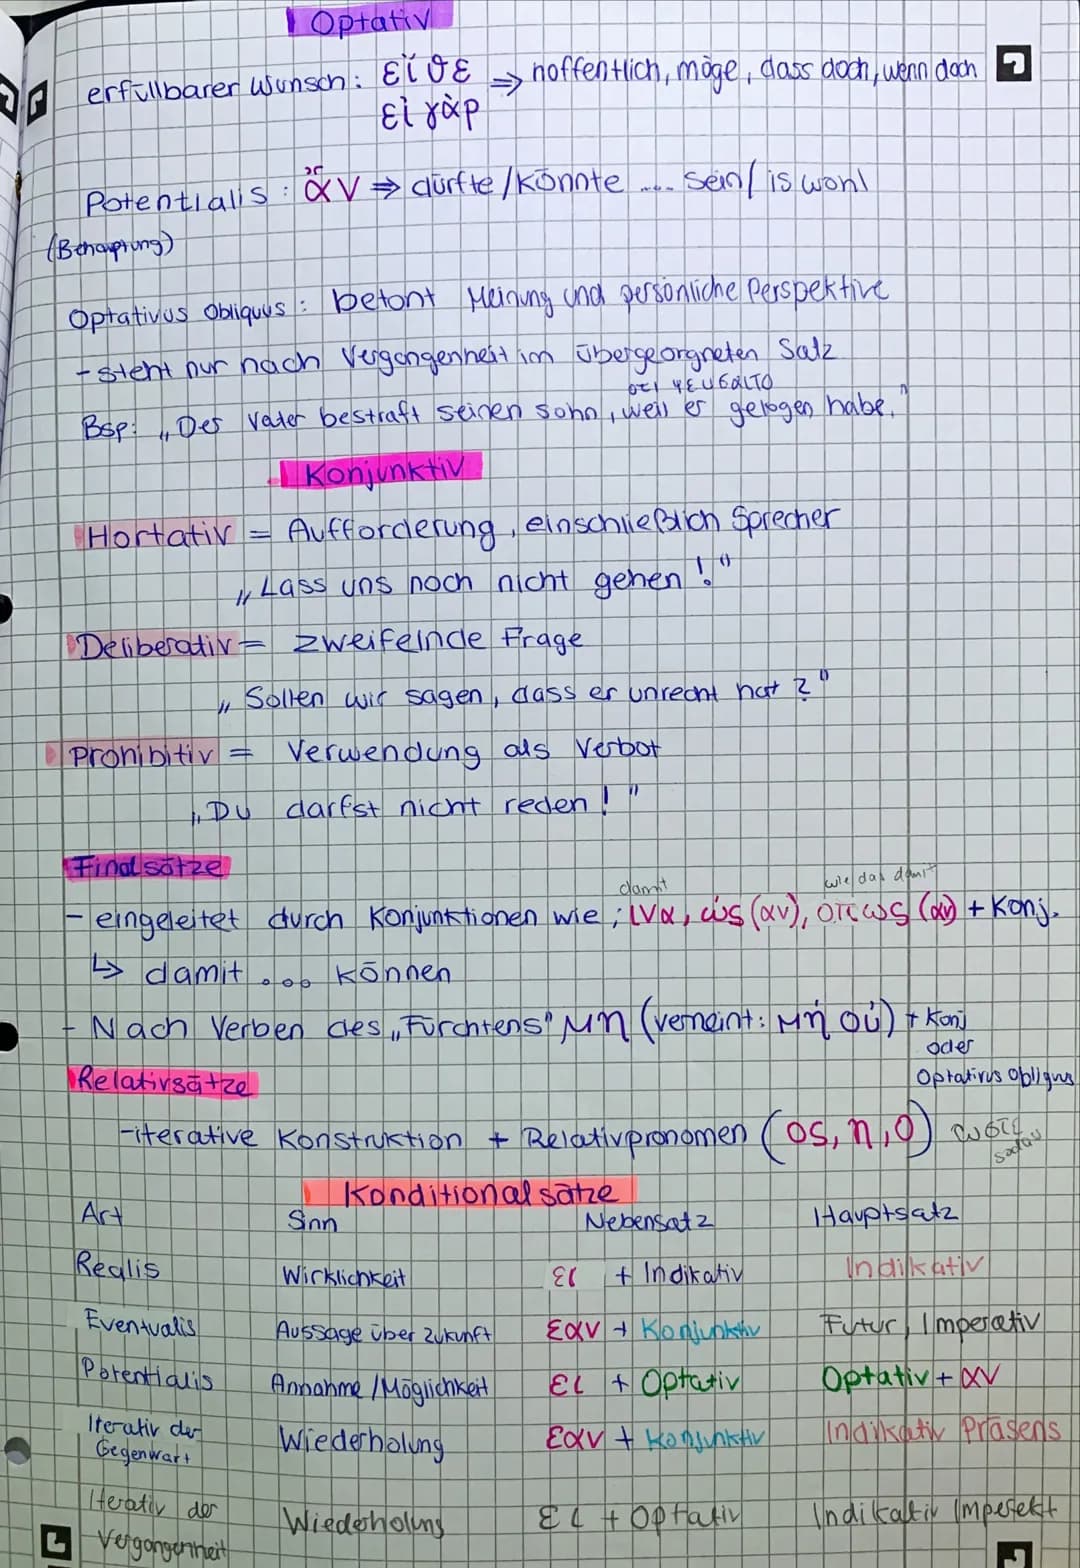 Optativ
erfüllbarer Wunsch: εἴθε ⇒ hoffentlich, möge, dass doch, wenn doch
εἰ γὰρ
Potentialis: ἄν ⇒ dürfte/könnte .... sein/is wohl
(Behauptung)
Optativus obliquus: betont Meinung und persönliche Perspektive
- steht nur nach Vergangenheit im übergeorgneten Satz
Bsp: „Der Vater bestraft seinen Sohn, weil er gelogen habe."
Konjunktiv
Hortativ = Aufforderung, einschließlich Sprecher
„Lass uns noch nicht gehen!"
Deliberativ = zweifelnde Frage
„Sollen wir sagen, dass er unrecht hat?"
Prohibitiv = Verwendung als Verbot
„Du darfst nicht reden!"
Finalsätze
damit wie das damit
- eingeleitet durch Konjunktionen wie; ινα, ώς (αν), οπως (αν) + Konj.
↳ damit ... können
- Nach Verben des „Fürchtens" μη (verneint: μή ού) + Konj
oder
Optativus obliquus
Relativsätze
- iterative Konstruktion + Relativpronomen (os, η, o)
Konditionalsätze
Art Sinn Nebensatz Hauptsatz
Realis Wirklichkeit ει + Indikativ Indikativ
Eventualis Aussage über Zukunft εαν + Konjunktiv Futur, Imperativ
Potentialis Annahme/Möglichkeit ει + Optativ Optativ + αν
Iterativ der Gegenwart Wiederholung εαν + Konjunktiv Indikativ Präsens
Iterativ der Vergangenheit Wiederholung ει + Optativ Indikativ Imperfekt